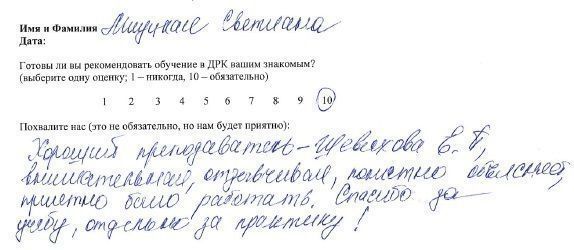 Имя и Фамилия Мицукан Светлана
Дата:
Готовы ли вы рекомендовать обучение в ДРК вашим знакомым?
(выберите одну оценку; 1 – никогда, 10 – обязательно)
1 2 3 4 5 6 7 8 9 10
Похвалите нас (это не обязательно, но нам будет приятно):
Хороший преподаватель – Шевелхова Е.П,
внимательная, отзывчивая, понятно объясняет,
приятно было работать. Спасибо за
учёбу, отдельно за практику!